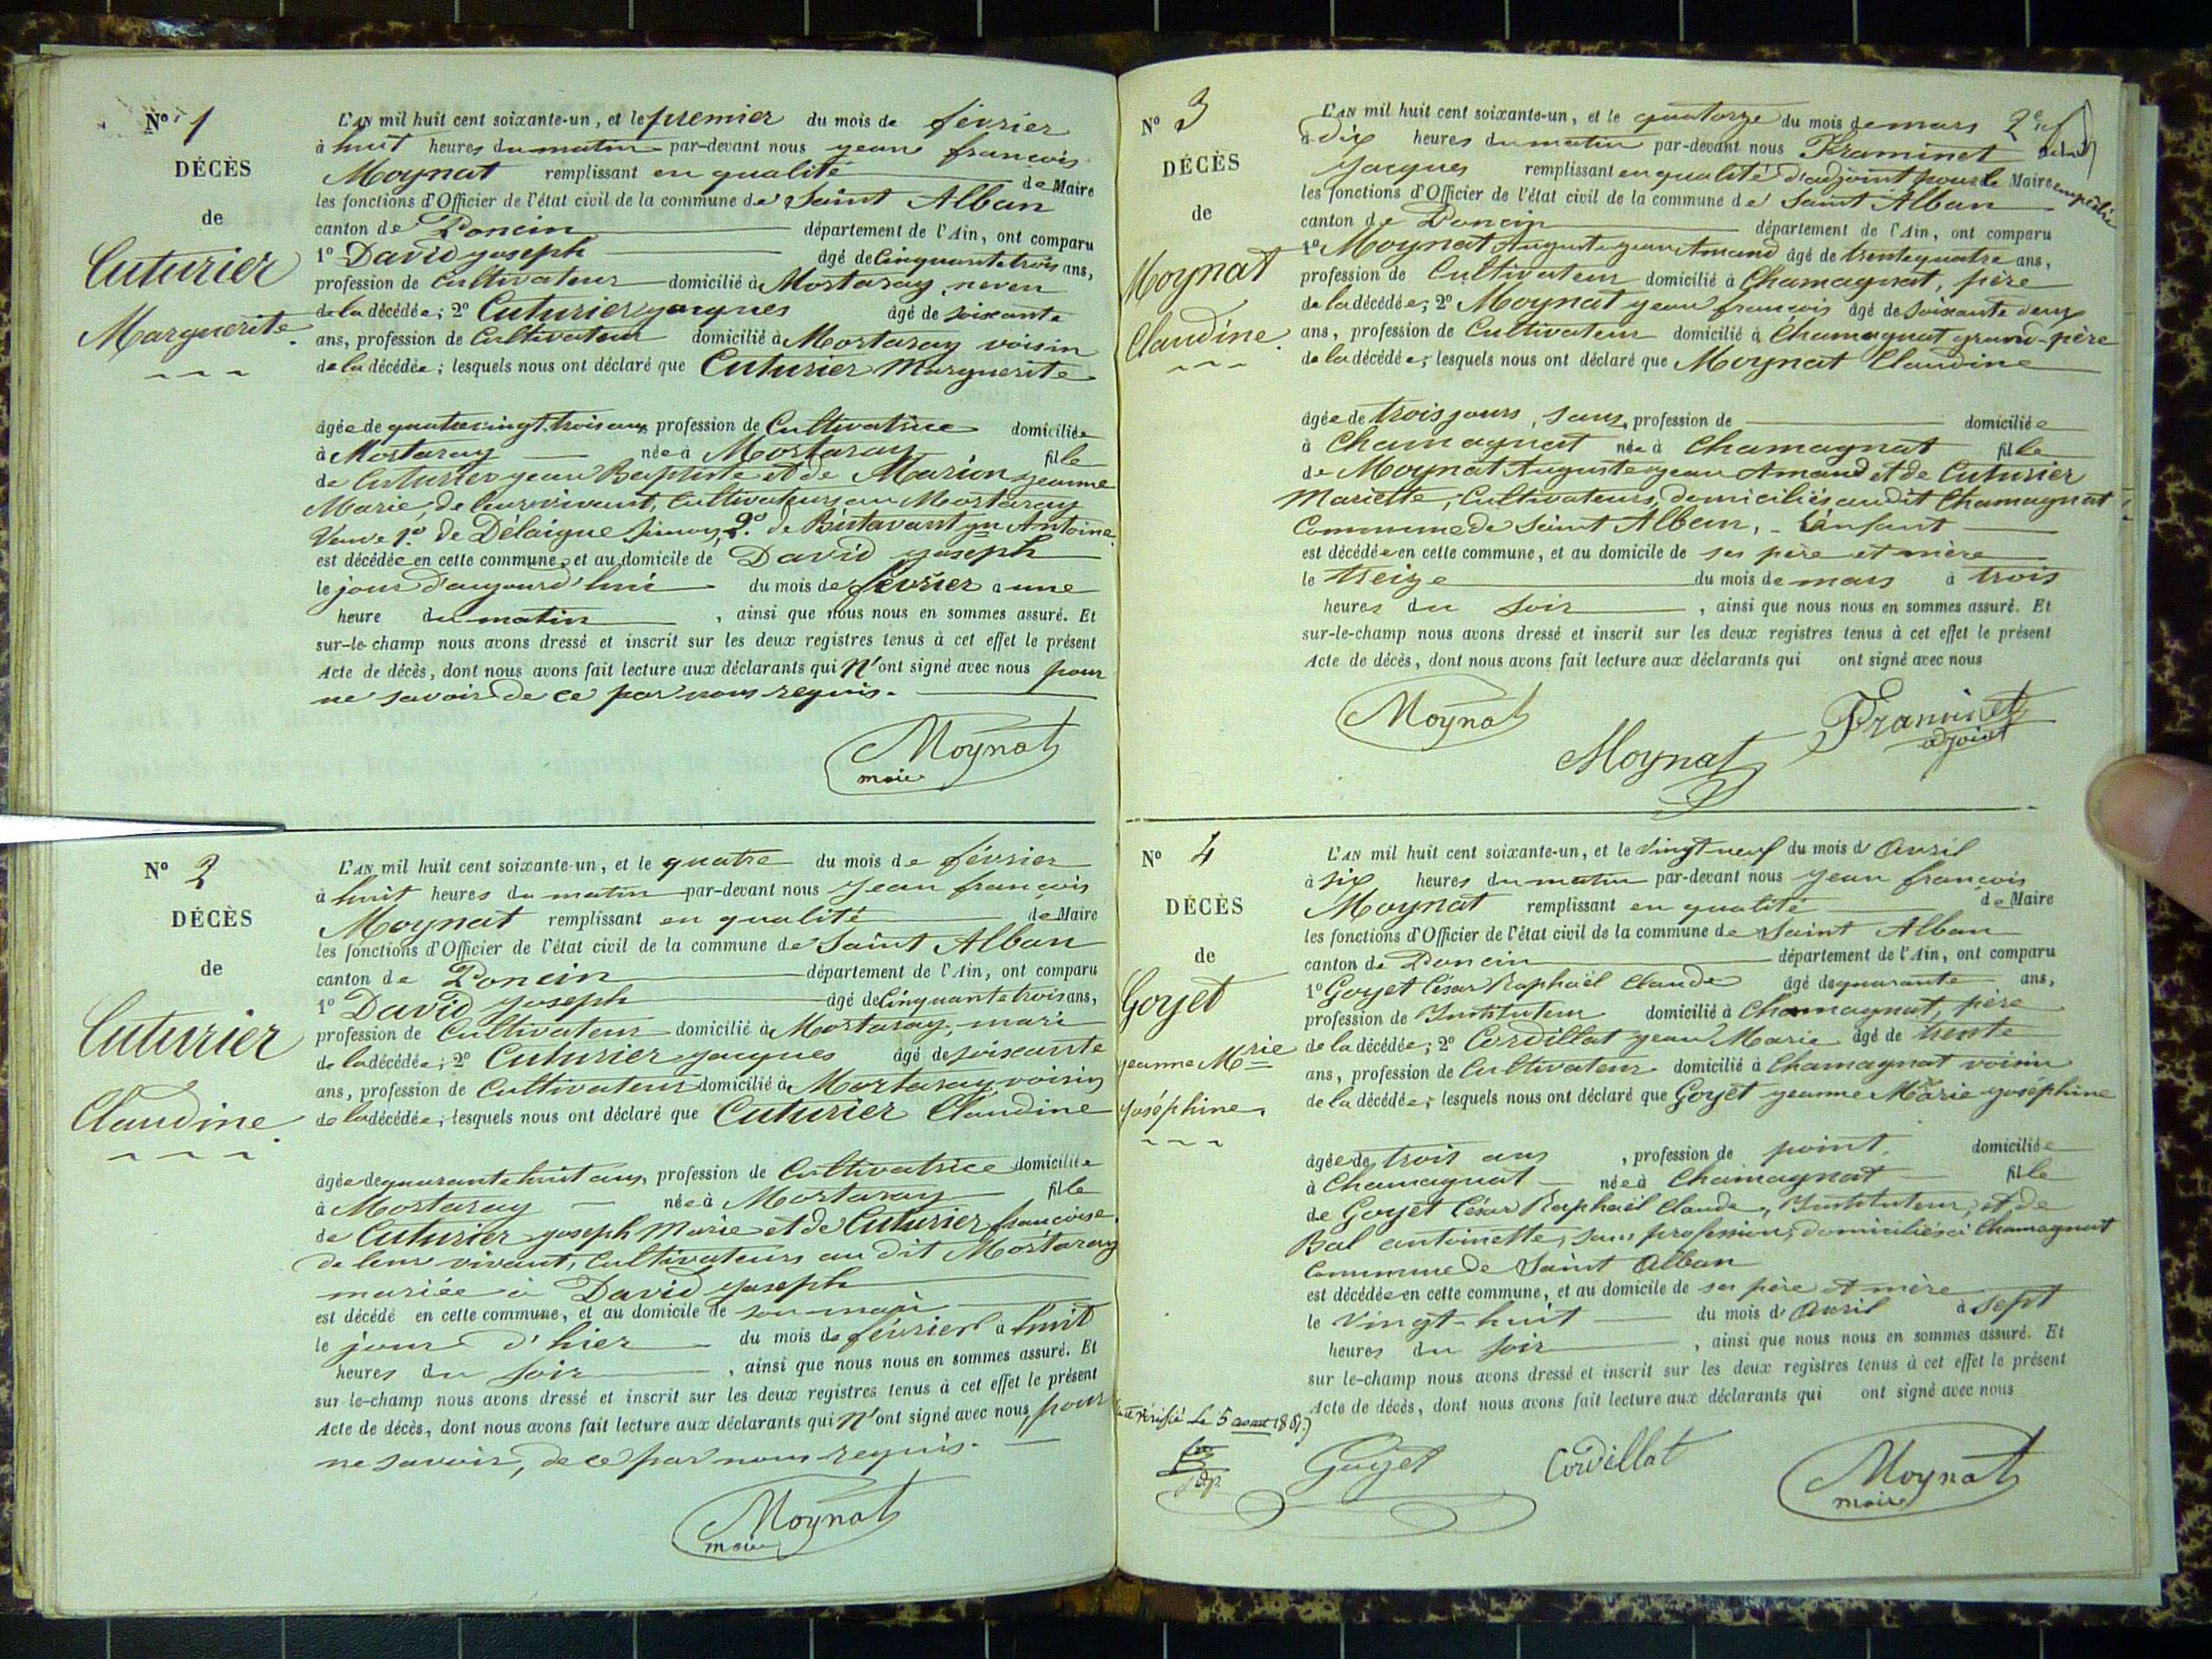 Nº 1
DÉCÈS
de
Cuturier
Marguerite.
L'AN mil huit cent soixante-un, et le premier du mois de février
à huit heures du matin par-devant nous jean françois
Moynat remplissant en qualité de Maire
les fonctions d'Officier de l'état civil de la commune de Saint Alban
canton de Poncin département de l'Ain, ont comparu
1º David joseph âgé de Cinquante trois ans,
profession de Cultivateur domicilié à Mortaray, neveu
de la décédée; 2º Cuturier jacques âgé de soixante
ans, profession de Cultivateur domicilié à Mortaray voisin
de la décédée; lesquels nous ont déclaré que Cuturier Marguerite
âgée de quatre vingt trois ans profession de Cultivatrice domiciliée
à Mortaray née à Mortaray fille
de Cuturier jean Baptiste et de Marion jeanne
Marie, de leur vivant, Cultivateurs au Mortaray
Veuve 1º de Délaigue Simon, 2º de Bistavant jn Antoine
est décédée en cette commune, et au domicile de David joseph
le jour d'aujourd'hui du mois de février à une
heure du matin, ainsi que nous nous en sommes assuré. Et
sur-le-champ nous avons dressé et inscrit sur les deux registres tenus à cet effet le présent
Acte de décès, dont nous avons fait lecture aux déclarants qui n'ont signé avec nous pour
ne savoir de ce par nous requis.
Moynat
maire
Nº 2
DÉCÈS
de
Cuturier
Claudine.
L'AN mil huit cent soixante-un, et le quatre du mois de février
à huit heures du matin par-devant nous Jean françois
Moynat remplissant en qualité de Maire
les fonctions d'Officier de l'état civil de la commune de Saint Alban
canton de Poncin département de l'Ain, ont comparu
1º David joseph âgé de Cinquante trois ans,
profession de Cultivateur domicilié à Mortaray, mari
de la décédée; 2º Cuturier jacques âgé de soixante
ans, profession de Cultivateur domicilié à Mortaray voisin
de la décédée; lesquels nous ont déclaré que Cuturier Claudine
âgée de quarante huit ans, profession de Cultivatrice domiciliée
à Mortaray née à Mortaray fille
de Cuturier joseph Marie et de Cuturier françoise
de leur vivant, Cultivateurs au dit Mortaray
mariée à David joseph
est décédé en cette commune, et au domicile de son mari
le jour d'hier du mois de février à huit
heures du soir, ainsi que nous nous en sommes assuré. Et
sur le-champ nous avons dressé et inscrit sur les deux registres tenus à cet effet le présent
Acte de décès, dont nous avons fait lecture aux déclarants qui n'ont signé avec nous pour
ne savoir, de ce par nous requis.
Moynat
maire
Nº 3
DÉCÈS
de
Moynat
Claudine.
L'AN mil huit cent soixante-un, et le quatorze du mois de mars 2e
à dix heures du matin par-devant nous Framinet
Jacques remplissant en qualité d'adjoint pour le Maire empêché
les fonctions d'Officier de l'état civil de la commune de Saint Alban
canton de Poncin département de l'Ain, ont comparu
1º Moynat Auguste jean Amand âgé de trente quatre ans,
profession de Cultivateur domicilié à Chamagnat, père
de la décédée; 2º Moynat jean françois âgé de soixante deux
ans, profession de Cultivateur domicilié à Chamagnat grand-père
de la décédée; lesquels nous ont déclaré que Moynat Claudine
âgée de trois jours, sans profession de domiciliée
à Chamagnat née à Chamagnat fille
de Moynat Auguste jean Amand et de Cuturier
Mariette, Cultivateurs, domiciliés au dit Chamagnat
Commune de Saint Alban, L'enfant
est décédée en cette commune, et au domicile de ses père et mère
le treize du mois de mars à trois
heures du soir, ainsi que nous nous en sommes assuré. Et
sur-le-champ nous avons dressé et inscrit sur les deux registres tenus à cet effet le présent
Acte de décès, dont nous avons fait lecture aux déclarants qui ont signé avec nous
Moynat
Moynat
Framinet
adjoint
Nº 4
DÉCÈS
de
Goyet
jeanne Mrie
joséphine.
L'AN mil huit cent soixante-un, et le vingt neuf du mois d'Avril
à six heures du matin par-devant nous jean françois
Moynat remplissant en qualité de Maire
les fonctions d'Officier de l'état civil de la commune de Saint Alban
canton de Poncin département de l'Ain, ont comparu
1º Goyet César Raphaël Claude âgé de quarante ans,
profession de Instituteur domicilié à Chamagnat, père
de la décédée; 2º Cordillat jean Marie âgé de trente
ans, profession de Cultivateur domicilié à Chamagnat voisin
de la décédée; lesquels nous ont déclaré que Goyet jeanne Marie joséphine
âgée de trois ans, profession de point. domiciliée
à Chamagnat née à Chamagnat fille
de Goyet César Raphaël Claude, Instituteur, et de
Bal antoinette, sans profession, domiciliés à Chamagnat
Commune de Saint Alban
est décédée en cette commune, et au domicile de ses père et mère
le vingt-huit du mois d'Avril à sept
heures du soir, ainsi que nous nous en sommes assuré. Et
sur le-champ nous avons dressé et inscrit sur les deux registres tenus à cet effet le présent
Acte de décès, dont nous avons fait lecture aux déclarants qui ont signé avec nous
vérifié Le 5 aout 1861
Goyet
Cordillat
Moynat
maire